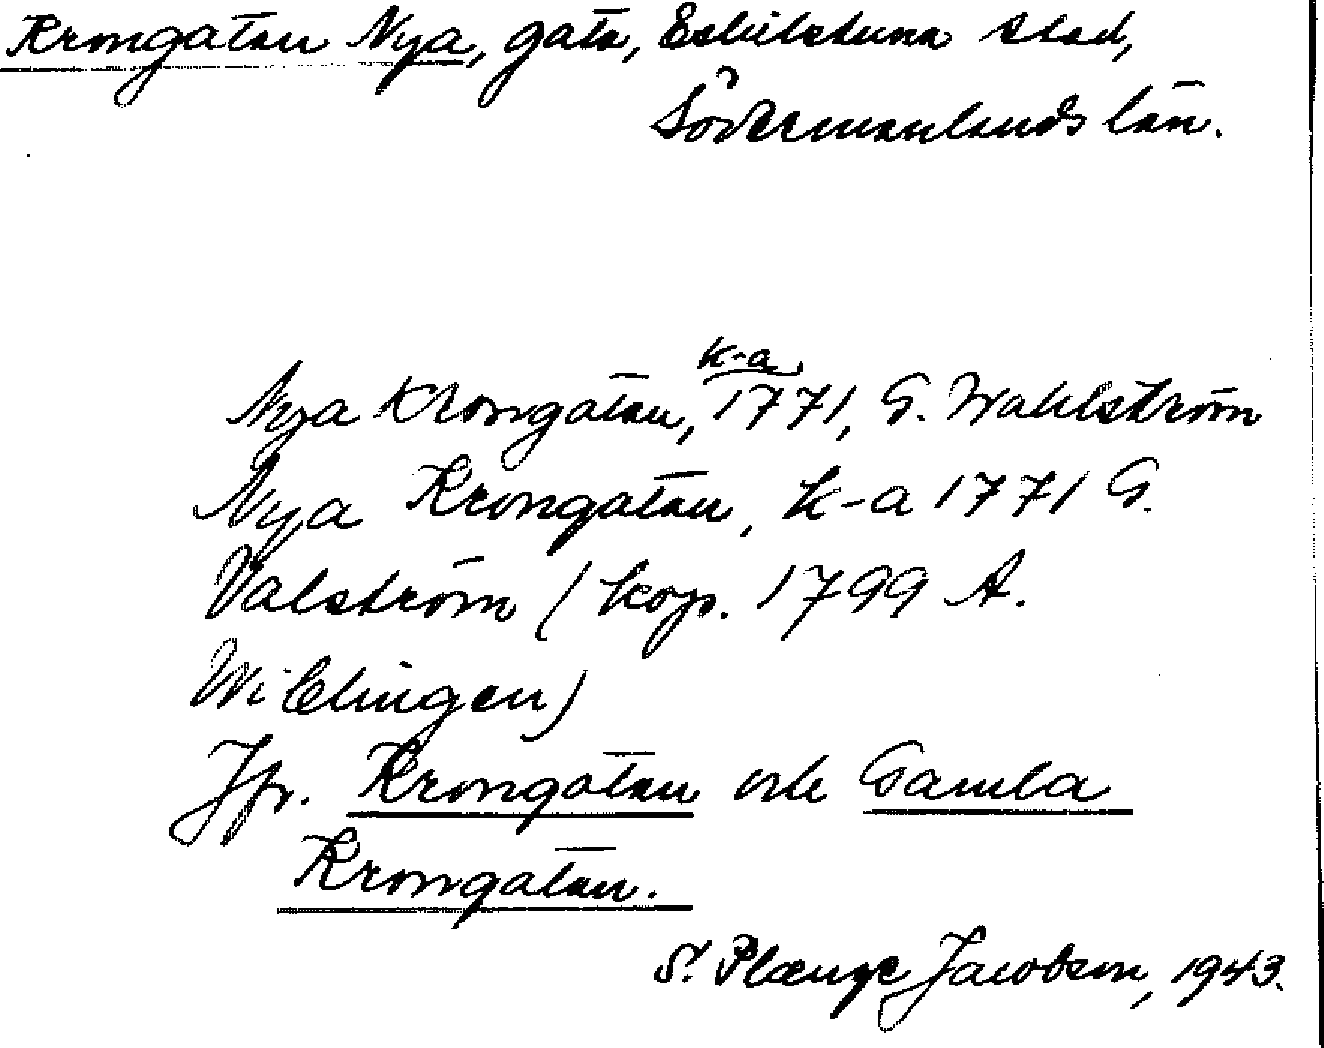 Krongatan Nya, gata, Eskilstuna stad,
Södermanlands län.
k-a
Nya Krongatan, 1771, G. Wahlström
Nya Krongatan, k-a 1771 G.
Valström (kop. 1799 A.
Wiblingen)
Jfr. Krongatan och Gamla
Krongatan.
S. Plænge Jacobson, 1943.